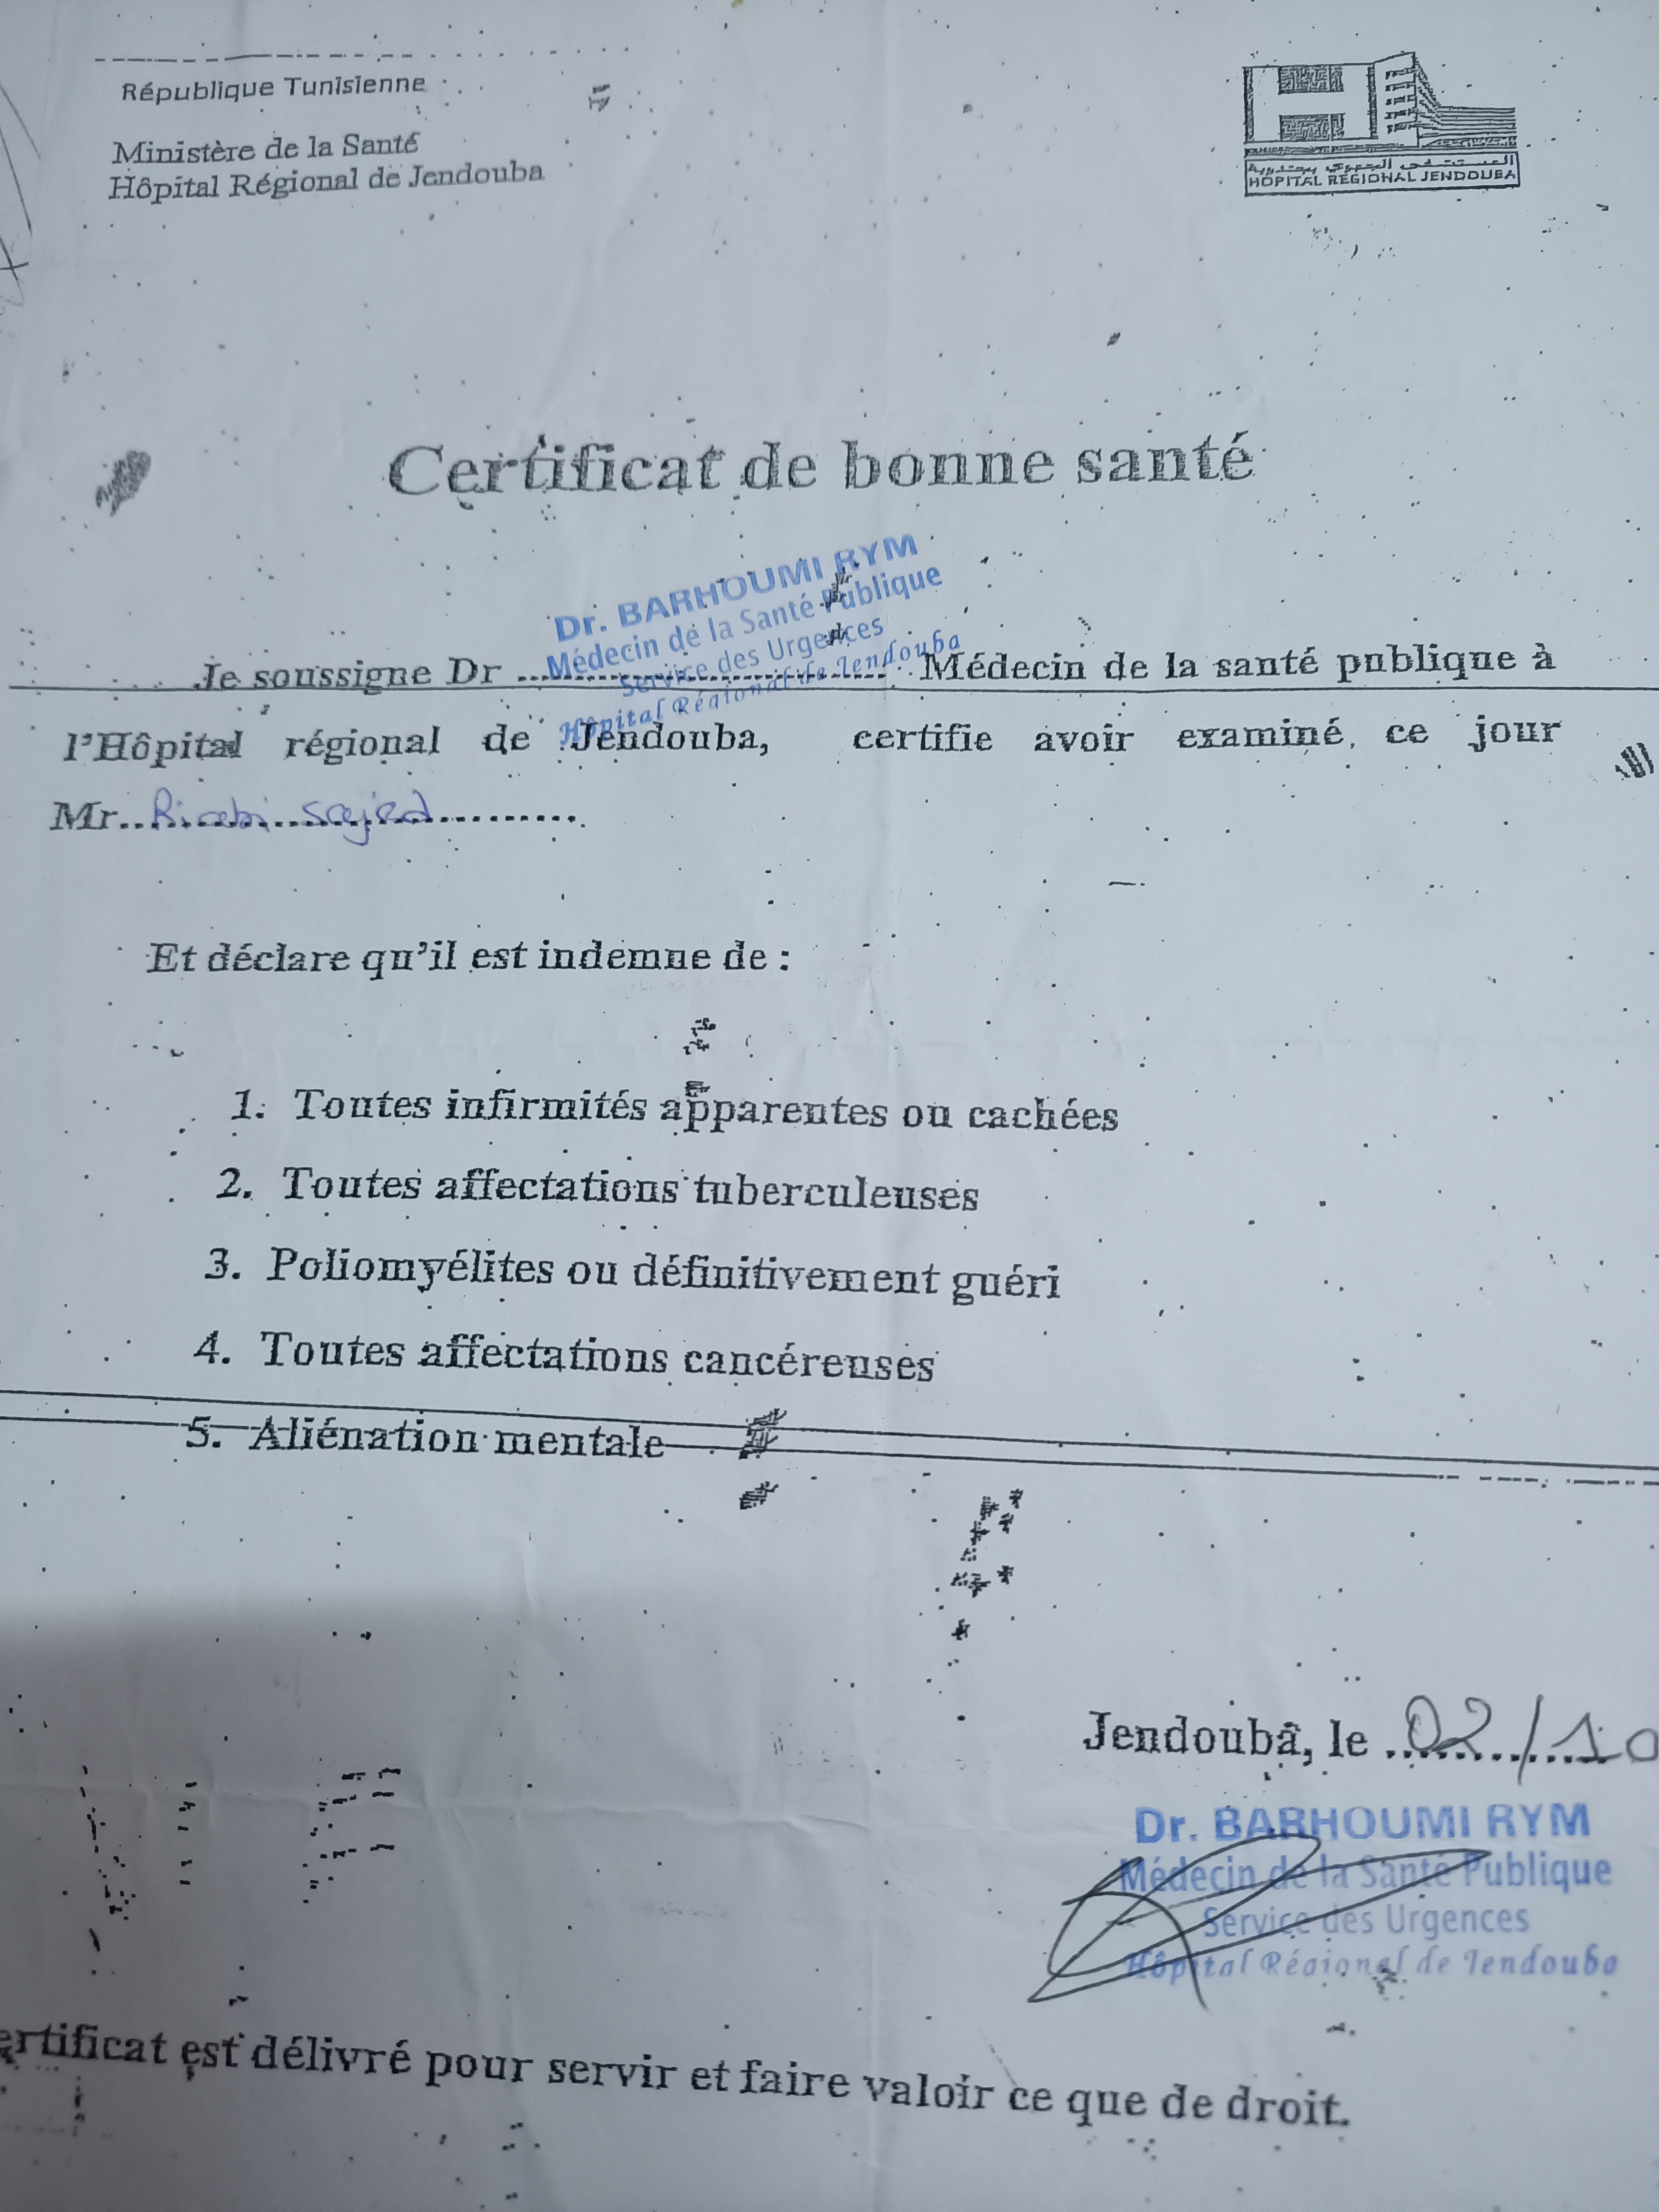 République Tunisienne
Ministère de la Santé
Hôpital Régional de Jendouba
المستشفى الجهوي بجندوبة
HÔPITAL RÉGIONAL JENDOUBA
Certificat de bonne santé
Dr. BARHOUMI RYM
Médecin de la Santé Publique
Service des Urgences
Hôpital Régional de Jendouba
Je soussigne Dr .......................................... Médecin de la santé publique à
l'Hôpital régional de Jendouba, certifie avoir examiné ce jour
Mr.. sajed ..............
Et déclare qu'il est indemne de :
1. Toutes infirmités apparentes ou cachées
2. Toutes affectations tuberculeuses
3. Poliomyélites ou définitivement guéri
4. Toutes affectations cancéreuses
5. Aliénation mentale
Jendouba, le 02/10
Dr. BARHOUMI RYM
Médecin de la Santé Publique
Service des Urgences
Hôpital Régional de Jendouba
ertificat est délivré pour servir et faire valoir ce que de droit.